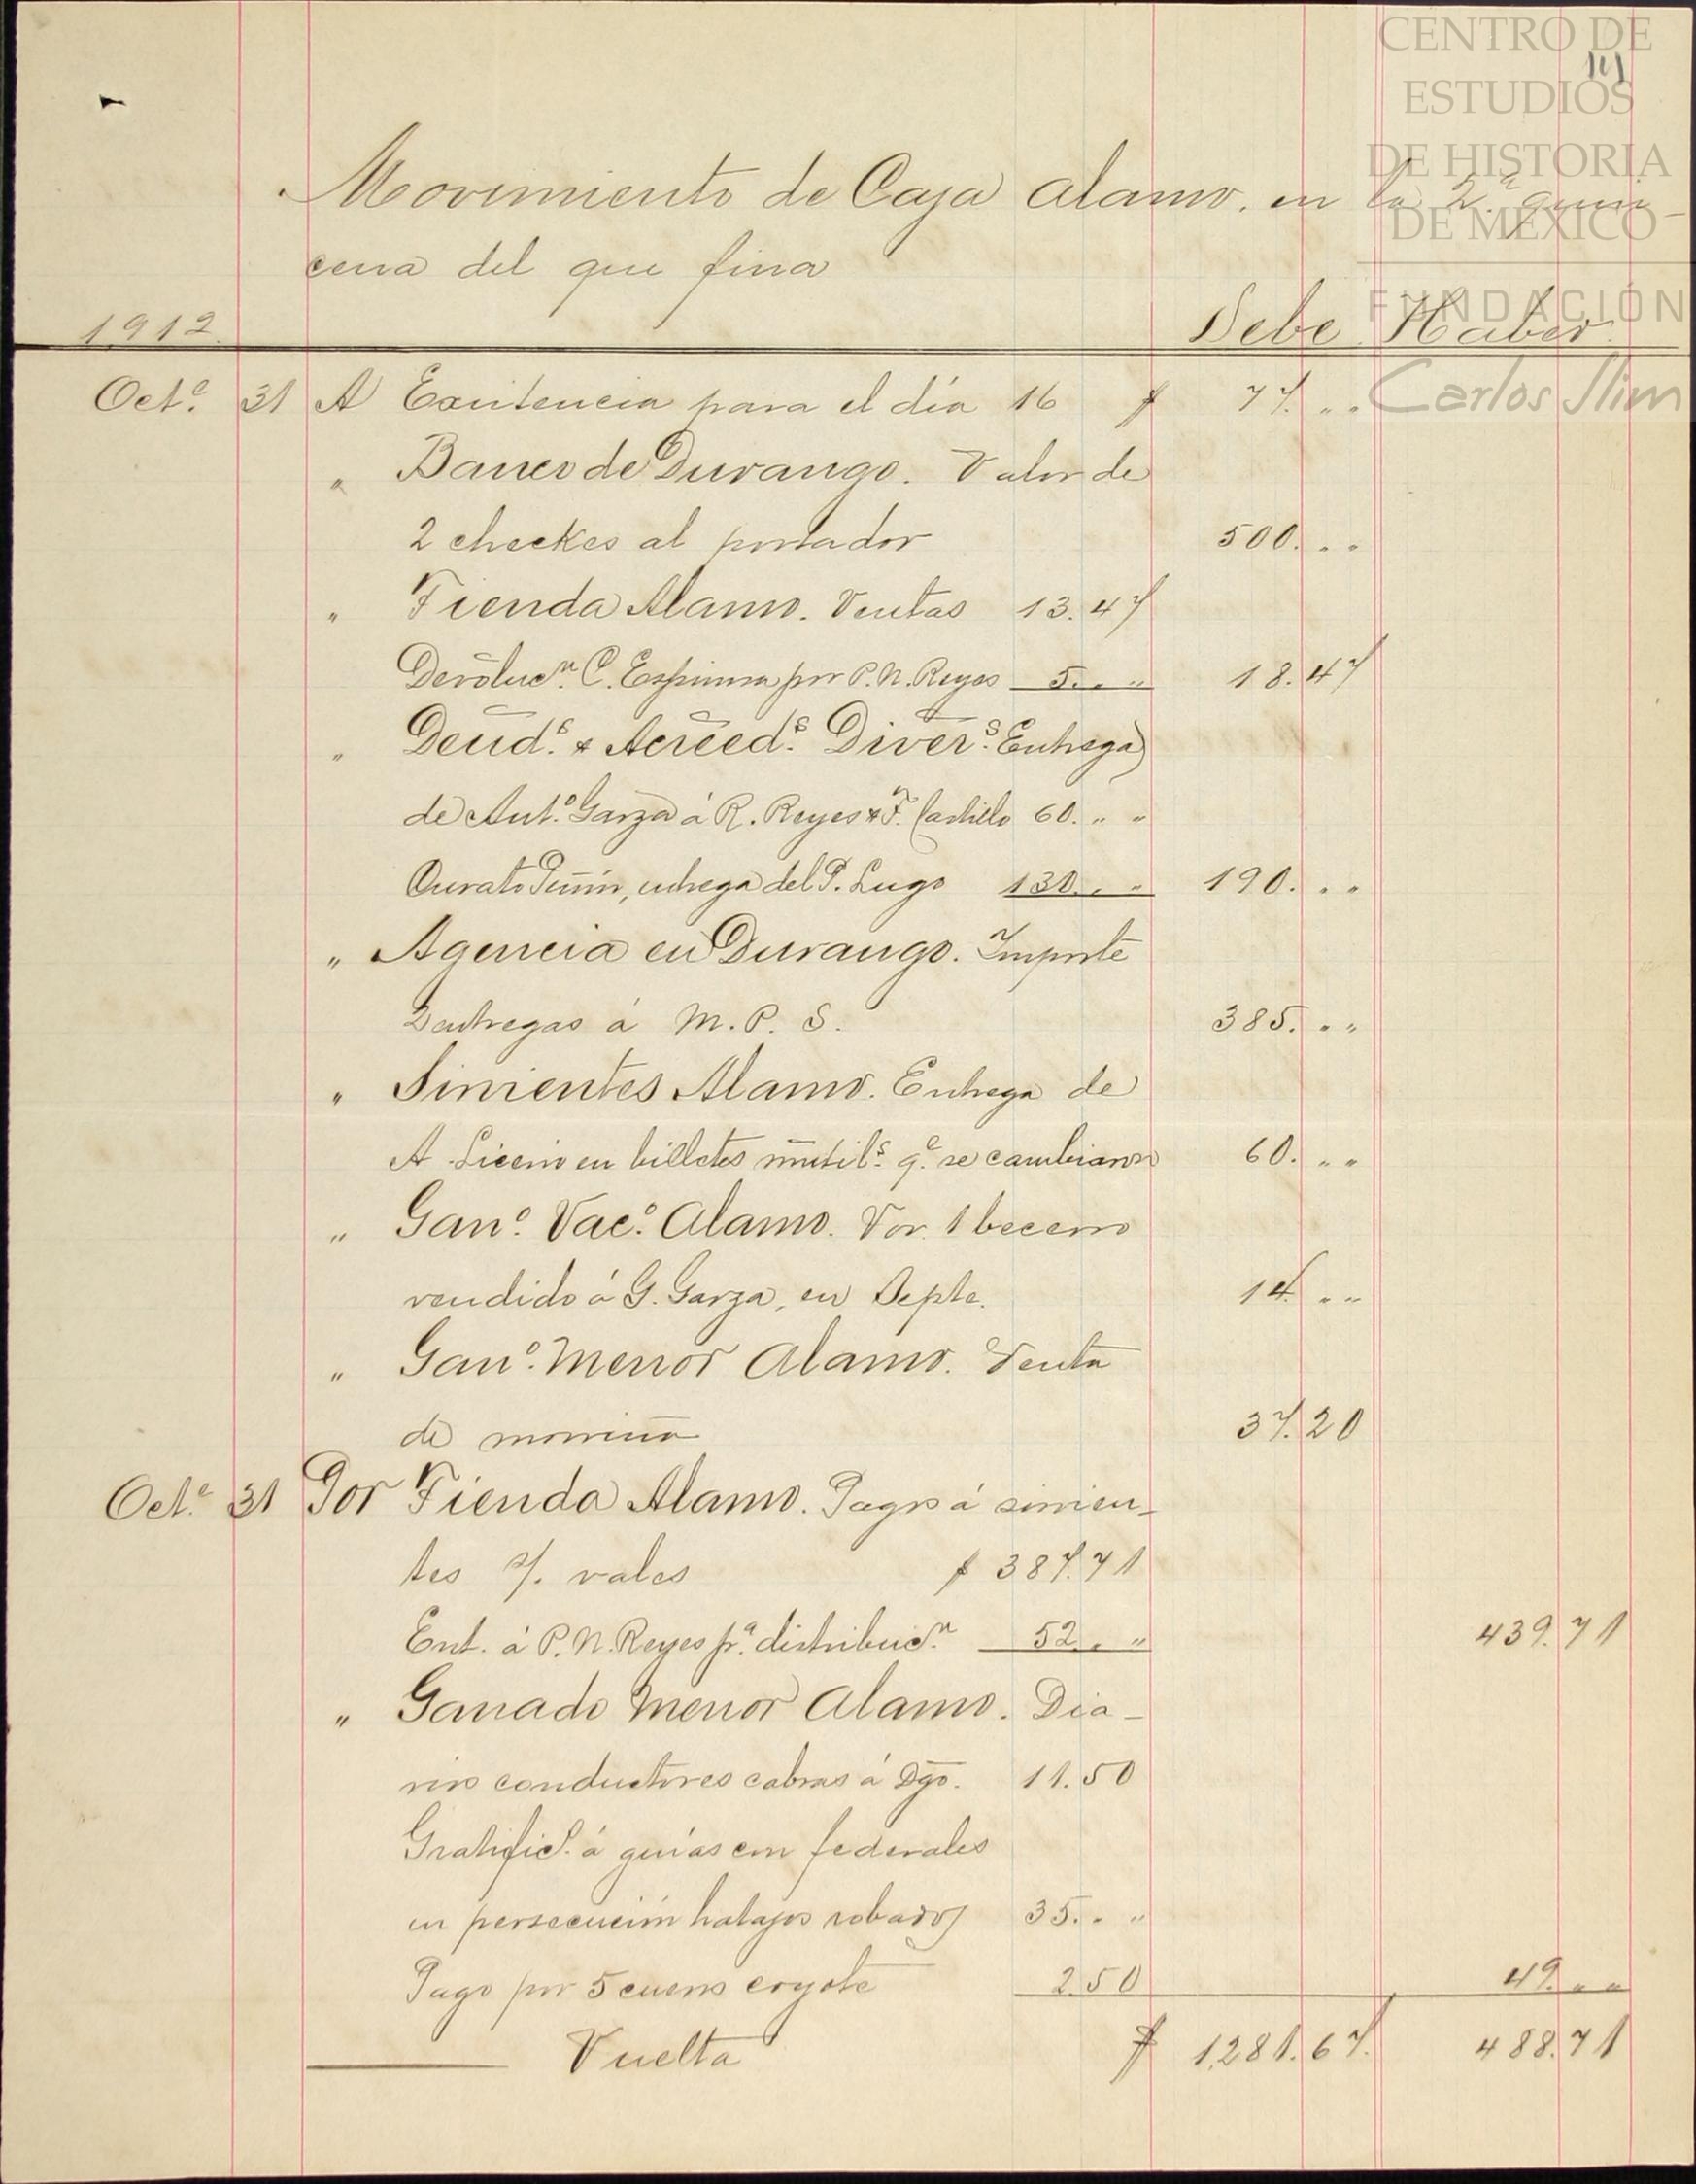 CENTRO DE
ESTUDIOS
DE HISTORIA
DE MÉXICO
FUNDACIÓN
Carlos Slim
Movimiento de Caja Alamo. en la 2.ª quin-
cena del que fina
1912. Debe Haber
Oct.e 31 A Existencia para el día 16 $ 77. " "
" Banco de Durango. Valor de
2 checkes al portador 500. " "
" Tienda Alamo. Ventas 13.47
Devoluc.n C. Espinosa por P. N. Reyes 5. " " 18.47
" Deud.s & Acreed.s Divers.s Entrega
de Ant.o Garza á R. Reyes & F. Castillo 60. " "
Curato Peñón, entrega del P. Lugo 130. " " 190. " "
" Agencia en Durango. Importe
2 entregas á M. P. S. 385. " "
" Simientes Alamo. Entrega de
A. Licerio en billetes mutil.s q.e se cambiaron 60. " "
" Gan.o Vac.o Alamo. Vor. 1 becerro
vendido á G. Garza, en Septe. 14. " "
" Gan.o Menor Alamo. Venta
de morriña 37.20
Oct.e 31 Por Tienda Alamo. Pagos á simien-
tes s/. vales $ 387.71
Ent. á P. N. Reyes p.a distribuc.n 52. " 439.71
" Ganado Menor Alamo. Dia-
rios conductores cabras á Dgo. 11.50
Gratific.s á guías con federales
en persecución hatajos robados 35. " "
Pago por 5 cueros coyote 2.50 49. " "
Vuelta $ 1,281.67. 488.71